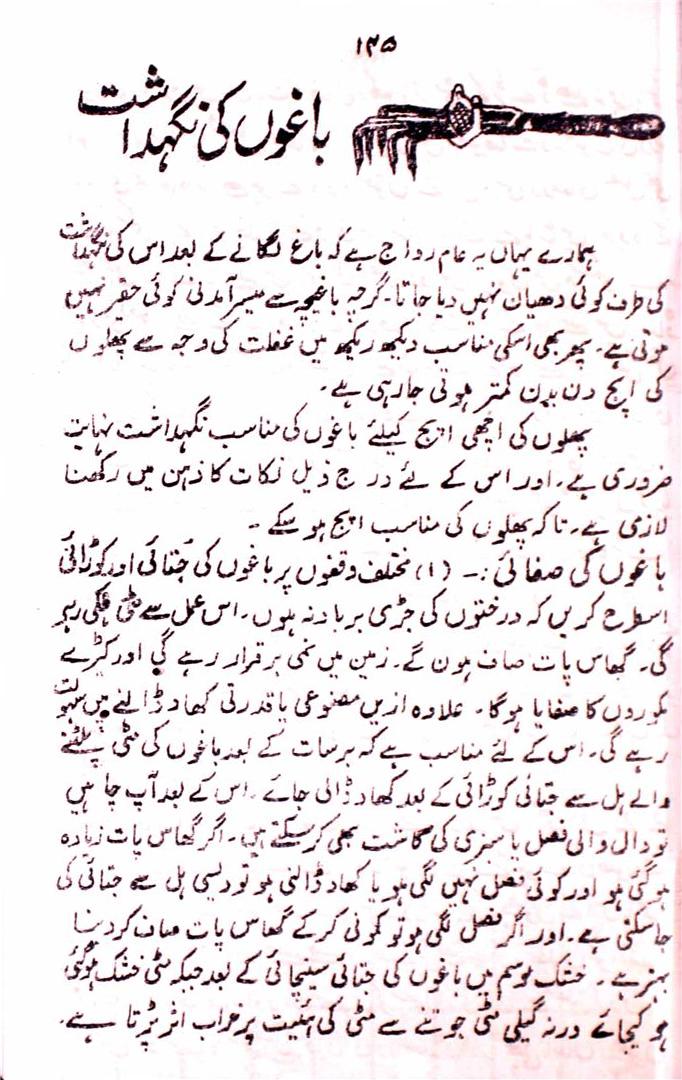 ۱۴۵
باغوں کی نگہداشت
ہمارے یہاں یہ عام رواج ہے کہ باغ لگانے کے بعد اس کی نگہداشت
کی طرف کوئی دھیان نہیں دیا جاتا۔ گرچہ باغیچہ سے میسر آمدنی کوئی حقیر نہیں
ہوتی ہے۔ پھر بھی اسکی مناسب دیکھ ریکھ میں غفلت کی وجہ سے پھلوں
کی اپج دن بدن کمتر ہوتی جارہی ہے۔
پھلوں کی اچھی اپج کیلئے باغوں کی مناسب نگہداشت نہایت
ضروری ہے۔ اور اس کے لئے درج ذیل نکات کا ذہن میں رکھنا
لازمی ہے۔ تاکہ پھلوں کی مناسب اپج ہو سکے۔
باغوں کی صفائی :۔ (۱) مختلف وقفوں پر باغوں کی جُتائی اور کوڑائی
اسطرح کریں کہ درختوں کی جڑی برباد نہ ہوں۔ اس عمل سے مٹی ہلکی رہے
گی۔ گھاس پات صاف ہوں گے۔ زمین میں نمی برقرار رہے گی اور کیڑے
مکوروں کا صفایا ہوگا۔ علاوہ ازیں مصنوعی یا قدرتی کھاد ڈالنے میں سہولت
رہے گی۔ اس کے لئے مناسب ہے کہ برسات کے بعد باغوں کی مٹی پلٹنے
والے ہل سے جتائی کوڑائی کے بعد کھاد ڈالی جائے۔ اس کے بعد آپ چاہیں
تو دال والی فصل یا سبزی کی کاشت بھی کر سکتے ہیں۔ اگر گھاس پات زیادہ
ہو گئی ہو اور کوئی فصل نہیں لگی ہو یا کھاد ڈالنی ہو تو دیسی ہل سے جتائی کی
جاسکتی ہے۔ اور اگر فصل لگی ہو تو کوئی کرکے گھاس پات صاف کر دینا
بہتر ہے۔ خشک موسم میں باغوں کی جتائی سینچائی کے بعد جبکہ مٹی خشک ہوگئی
ہو کیجائے ورنہ گیلی مٹی جوتنے سے مٹی کی ہئیت پر خراب اثر پڑتا ہے۔